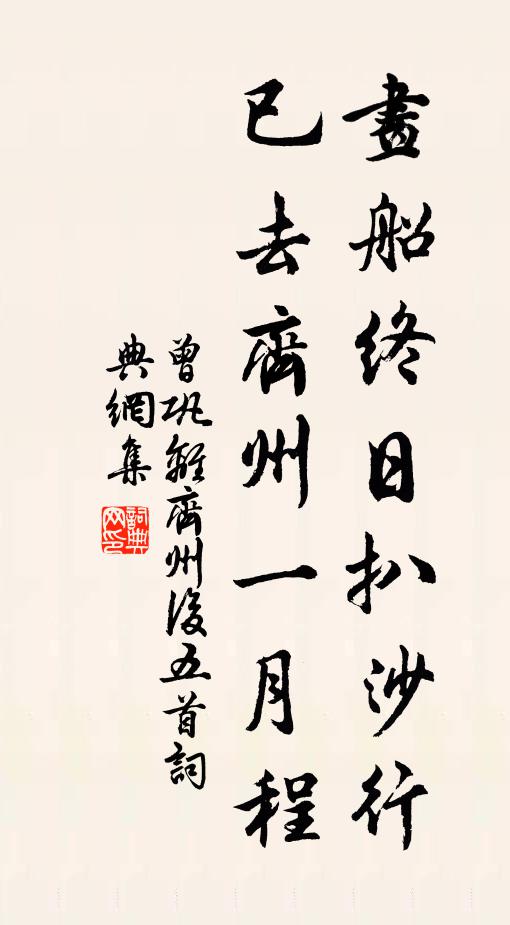 畫船終日扒沙行
已去齊州一月程
曾巩離齊州後五首詞
典網集
詞典網印